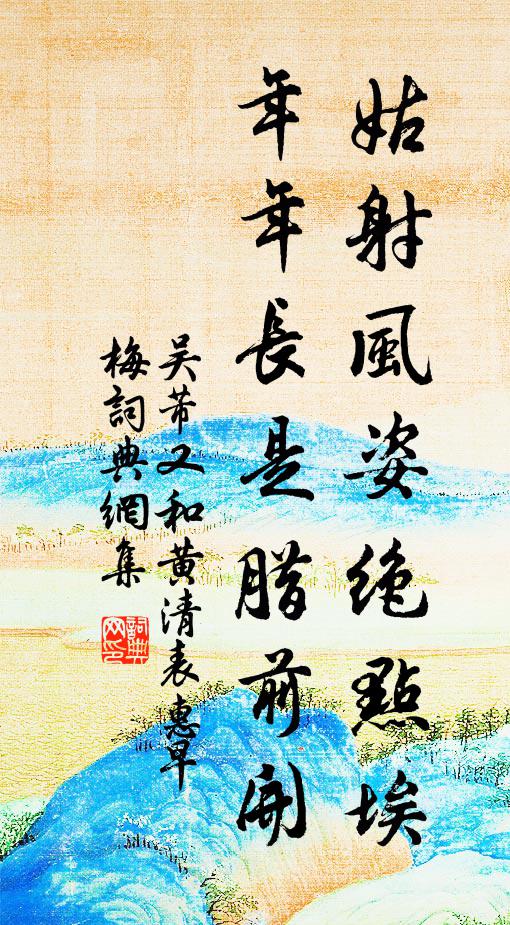 姑射風姿絶點埃
年年長是腊前開
吴芾又和黄清表惠早
梅詞典網集
詞典网印